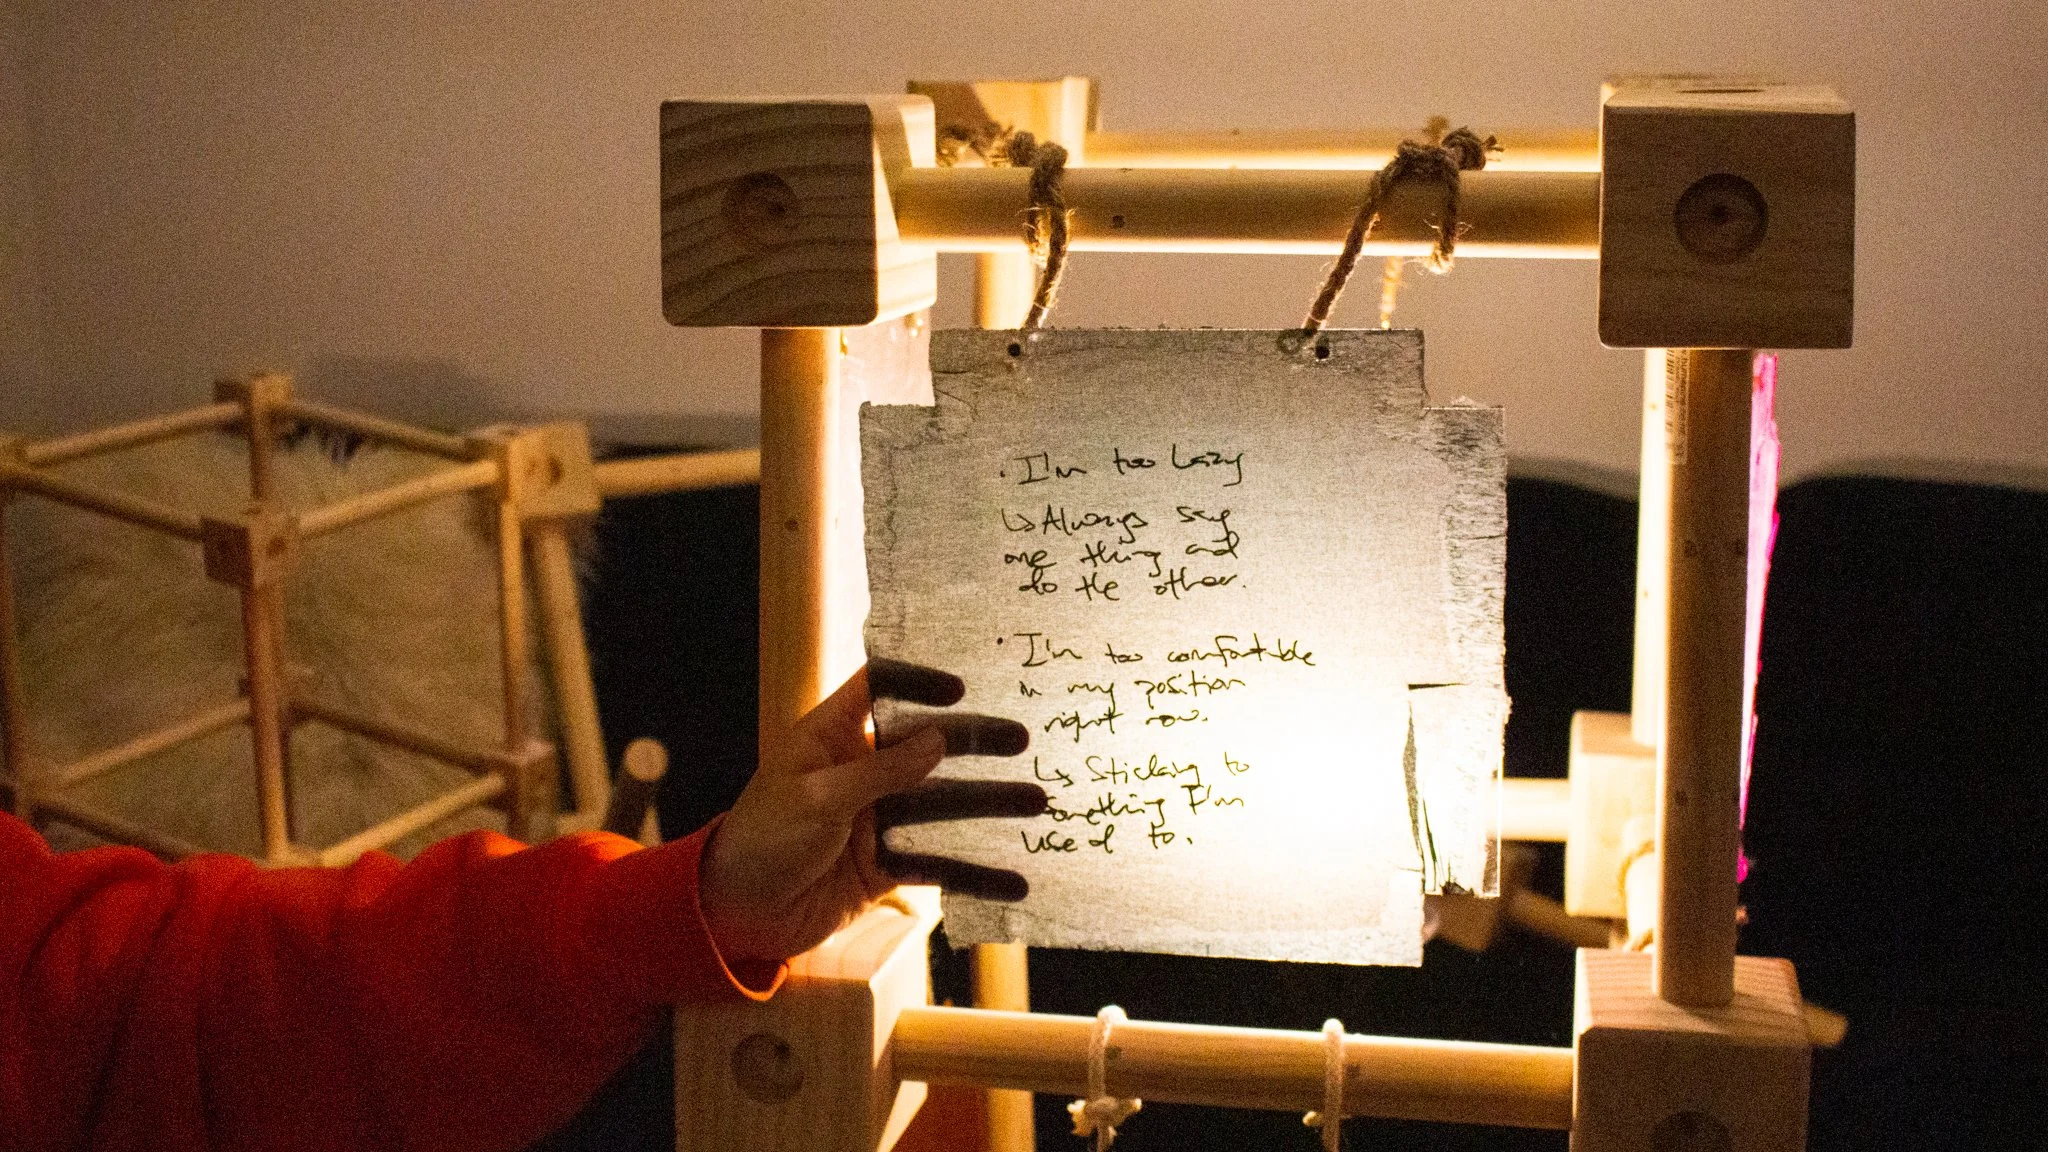 · I'm too lazy
↳ Always say
one thing and
do the other.
· I'm too comfortable
in my position
right now.
↳ Sticking to
something I'm
used to.